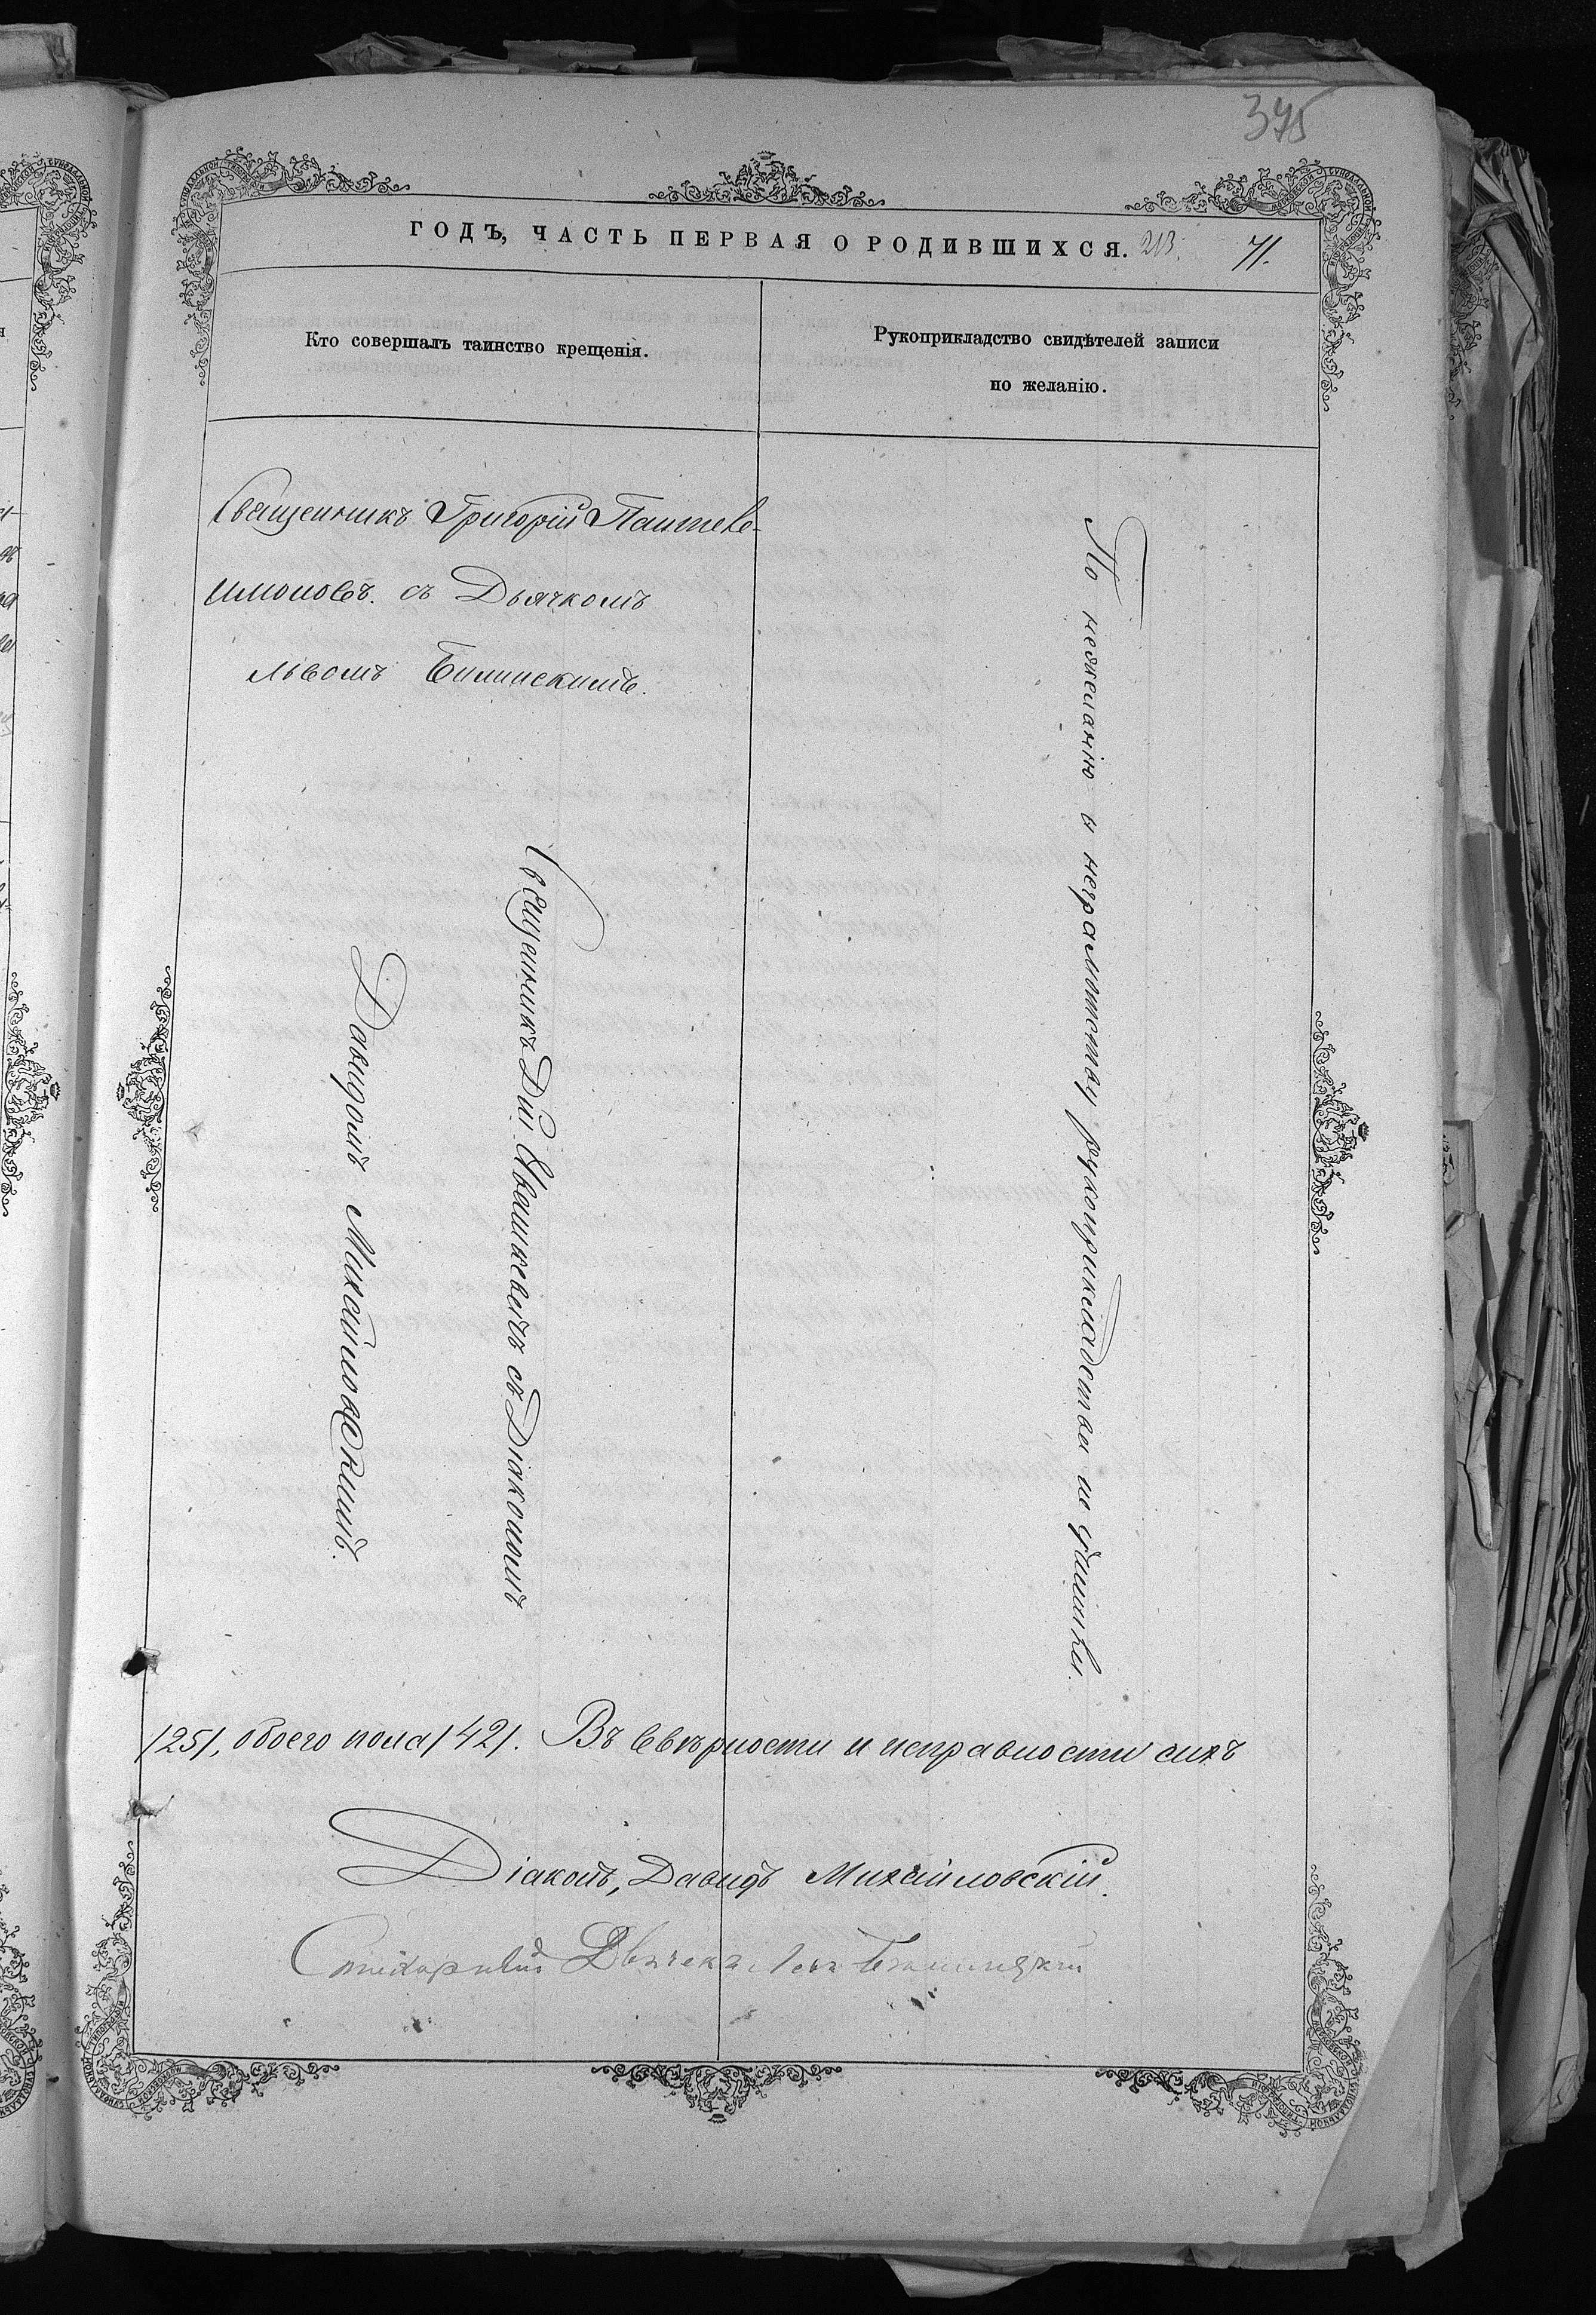 375
ГОДЪ, ЧАСТЬ ПЕРВАЯ О РОДИВШИХСЯ. 213. 71.
Кто совершалъ таинство крещенія.
Рукоприкладство свидѣтелей записи
по желанію.
Священникъ Григорій Пантеле-
имоновъ. съ Дьячкомъ
Львомъ Билинскимъ.
Священникъ Дій Ивашкевичъ съ Діакономъ
Давидомъ Михайловскимъ.
По нежеланію и неграмотству рукоприкладства не учинили.
/25/, обоего пола /42/. Въ вѣрности и исправности сихъ
Діаконъ, Давидъ Михайловскій.
Стихарный Дьячекъ Левъ